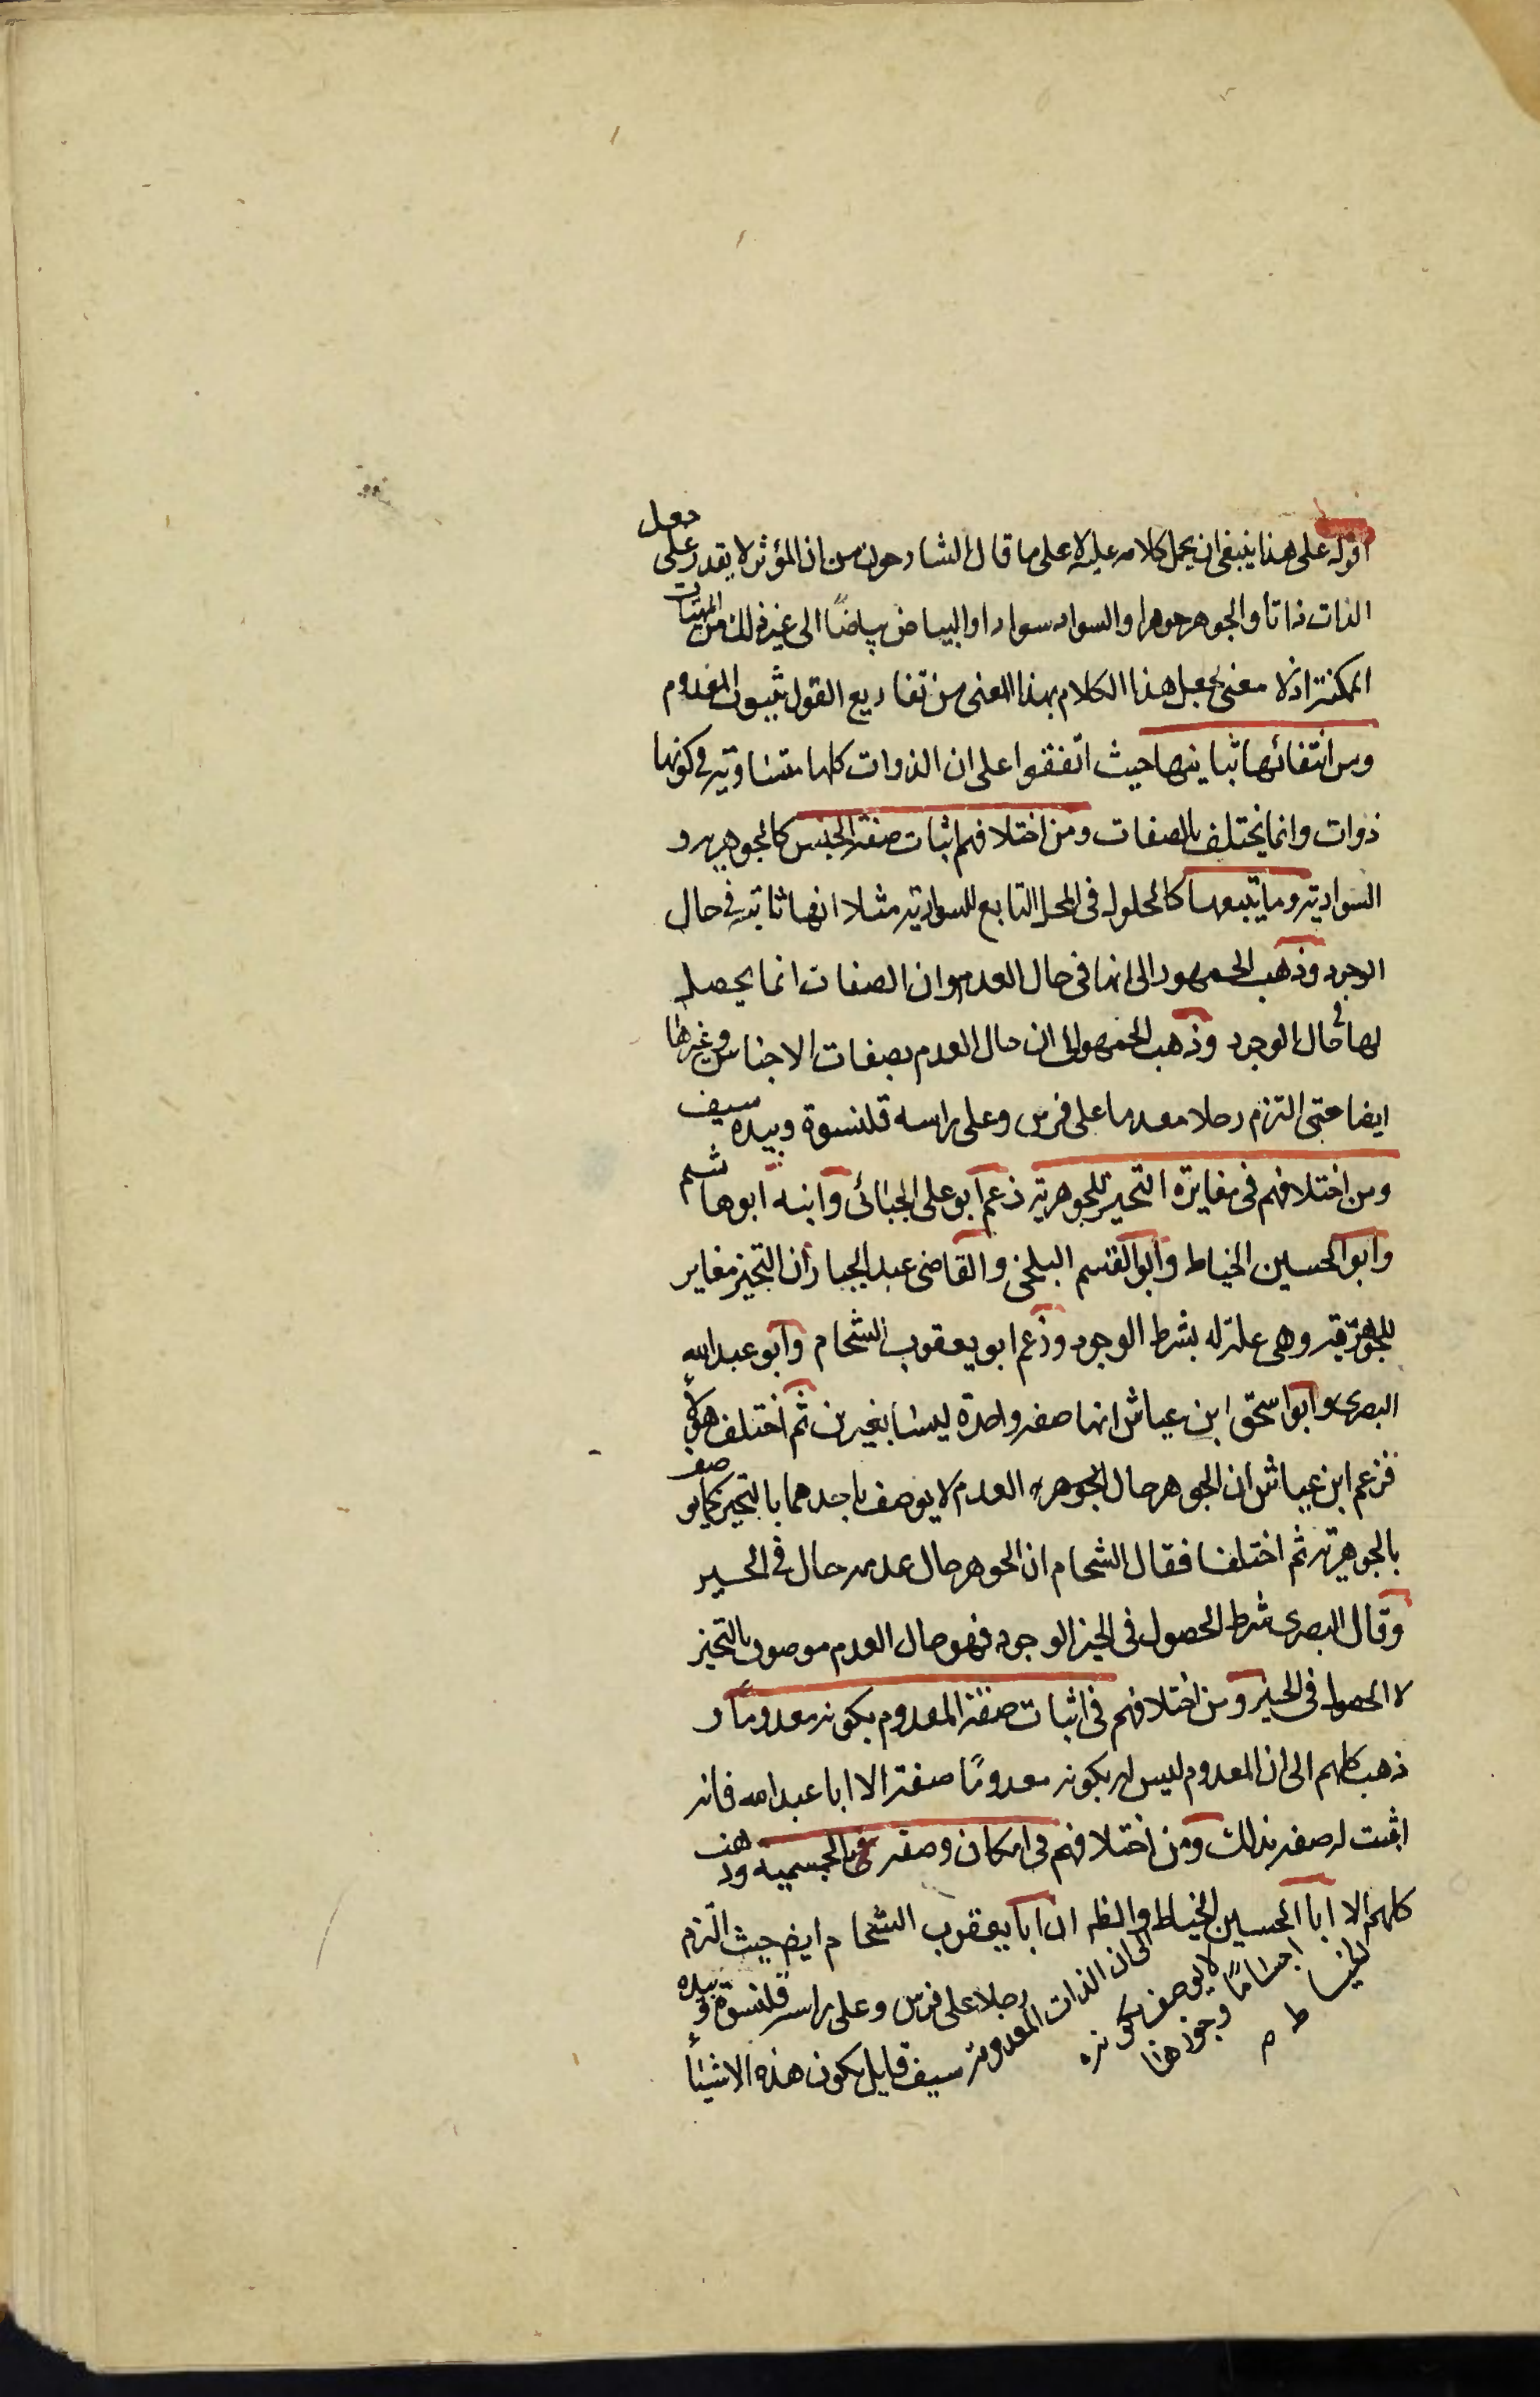 اقول على هذا ينبغي ان يحمل كلامه عليه لا على ما قال الشارحون من ان المؤثر لا يقدر على جعل
الذات ذاتا والجوهر جوهرا والسواد سوادا والبياض بياضًا الى غير ذلك من المهيات
الممكنة اذ لا معنى لجعل هذا الكلام بهذا المعنى من تفاريع القول بثبوت المعدوم
ومن انتفائها تباينها حيث اتفقوا على ان الذوات كلها متساوية في كونها
ذوات وانما يختلف بالصفات ومن اختلافهم اثبات صفة الجنس كالجوهرية و
السوادية وما يتبعها كالحلول في المحل التابع للسوادية مثلا انها ثابتة في حال
الوجود وذهب الجمهور الى انها في حال العدم وان الصفات انما يحصل
لها في حال الوجود وذهب الجمهور الى ان حال العدم بصفات الاجناس وغيرها
ايضا حتى التزم رجلا معدما على فرس وعلى راسه قلنسوة وبيده سيف
ومن اختلافهم في مغايرة التحيز للجوهرية زعم ابو على الجبائى وابنه ابو هاشم
وابو الحسين الخياط وابو القسم البلخى والقاضى عبد الجبار ان التحيز مغاير
للجوهرية وهى علة له بشرط الوجود وزعم ابو يعقوب الشحام وابو عبد الله
البصرى وابو اسحق ابن عياش انها صفة واحدة ليسا بغيرين ثم اختلف هؤلاء
فزعم ابن عياش ان الجوهر حال الجوهرية العدم لا يوصف باحدهما بالتحيز كما يوصف
بالجوهرية ثم اختلفا فقال الشحام ان الجوهر حال عدمه حال في الحيز
وقال البصرى شرط الحصول في الحيز الوجود فهو حال العدم موصوف بالتحيز
لا الحصول في الحيز ومن اختلافهم في اثبات صفة المعدوم بكونه معدومًا و
ذهب كلهم الى ان المعدوم ليس له بكونه معدومًا صفة الا ابا عبد الله فانه
اثبت له صفة بذلك ومن اختلافهم في امكان وصفه بالجسمية وذهب
كلهم الا ابا الحسين الخياط والظ ان ابا يعقوب الشحام ايض حيث التزم
رجلا على فرس وعلى راسه قلنسوة وبيده
سيف قايل بكون هذه الاشياء
الى ان الذات المعدومة
لا يوصف بكونه
اجسامًا وجوز هذا
الخياط م